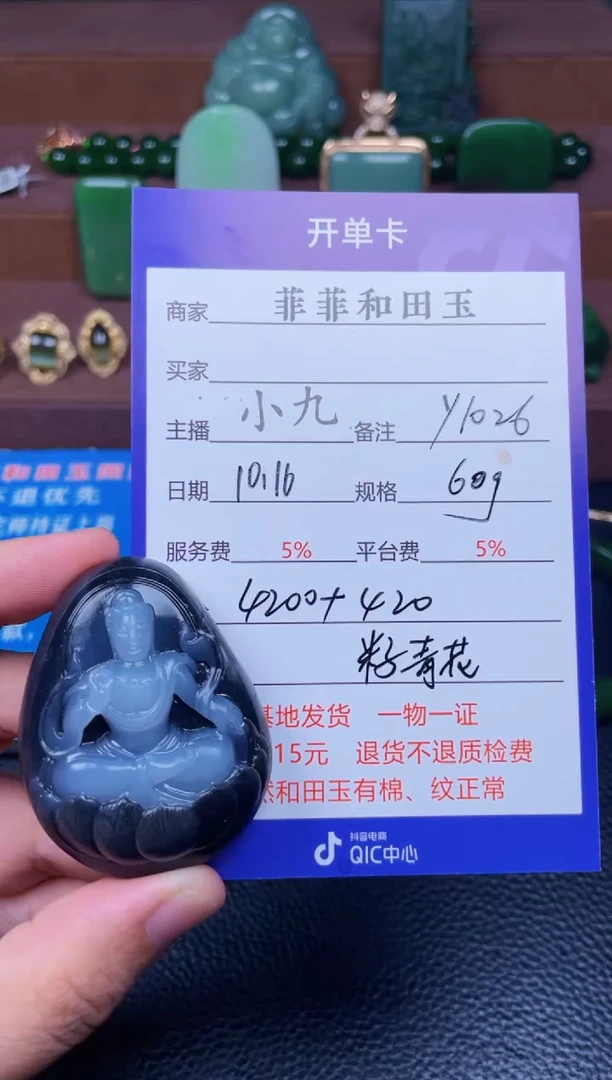 开单卡
商家 菲菲和田玉
买家
主播 小九 备注 Y1026
日期 10.16 规格 60g
服务费 5% 平台费 5%
4200+420
籽青花
基地发货 一物一证
15元 退货不退质检费
然和田玉有棉、纹正常
抖音电商
QIC中心
和田玉
不退优先